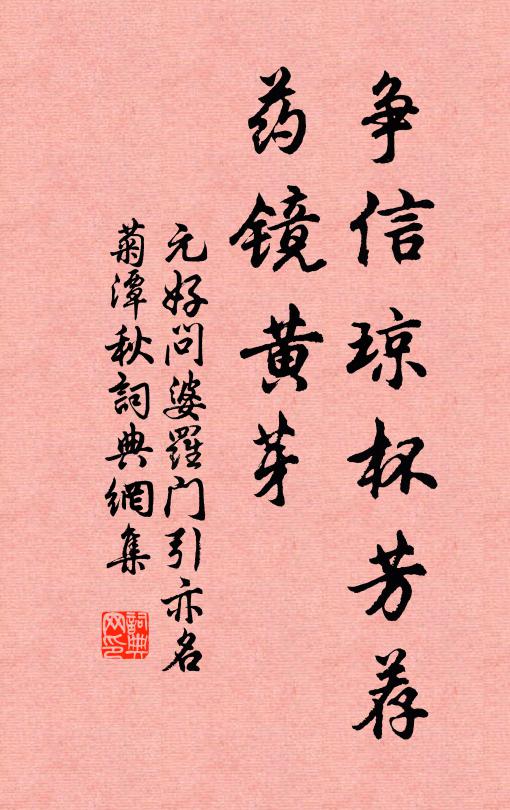 争信琼杯芳荐
药镜黄芽
元好问婆罗门引亦名
菊潭秋詞典網集
詞典网印